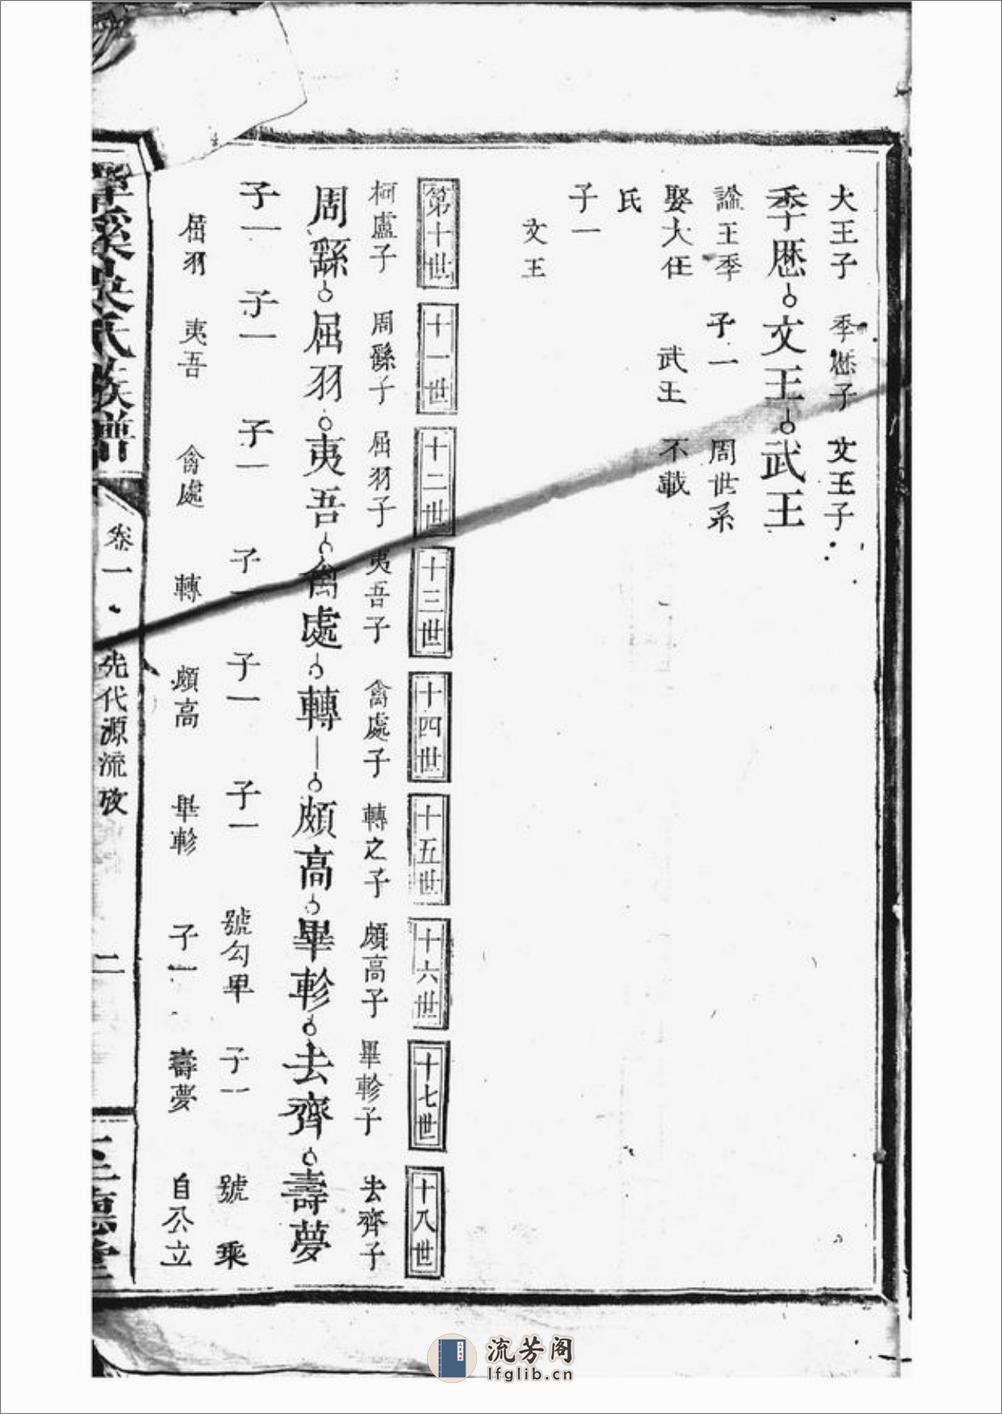 大王子　季歷子　文王子
季歷　文王　武王
諡王季　子一　周世系
娶大任　武王　不載
氏
子一
文王
第十世　十一世　十二世　十三世　十四世　十五世　十六世　十七世　十八世
柯盧子　周繇子　屈羽子　夷吾子　禽處子　轉之子　頗高子　畢軫子　去齊子
周繇　屈羽　夷吾　禽處　轉　頗高　畢軫　去齊　壽夢
子一　子一　子一　子一　子一　子一　號勾畢　子一　號乘
屈羽　夷吾　禽處　轉　頗高　畢軫　子一　壽夢　自公立
溪吳氏族譜　卷一　先代源流攷　二　三德堂
流芳阁
lfglib.cn